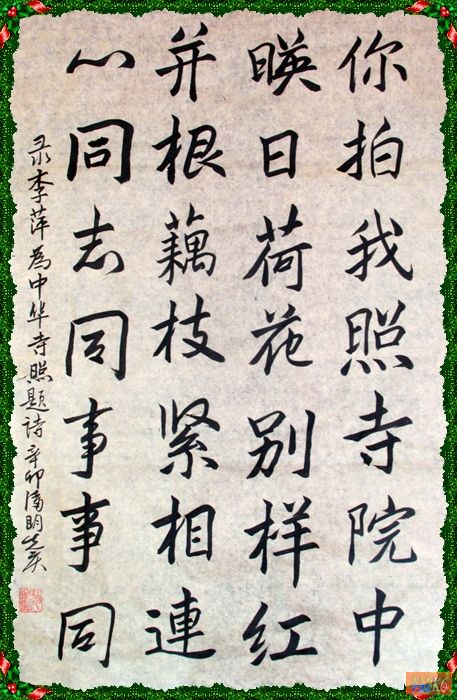 你拍我照寺院中
暎日荷花别样红
并根藕枝紧相連
心同志同事事同
录李萍為中华寺照题诗辛卯清明